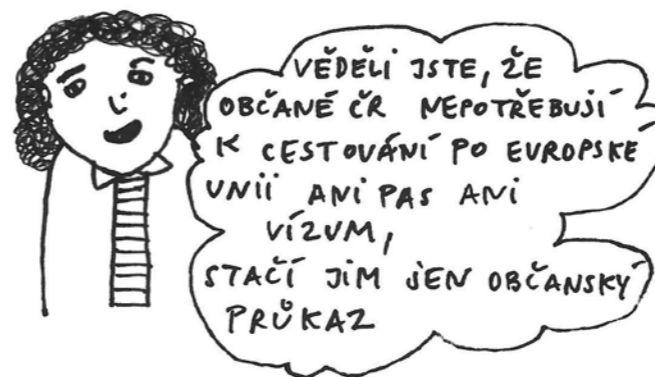 VĚDĚLI JSTE, ŽE
OBČANÉ ČR NEPOTŘEBUJÍ
K CESTOVÁNÍ PO EVROPSKÉ
UNII ANI PAS ANI
VÍZUM,
STAČÍ JIM JEN OBČANSKÝ
PRŮKAZ